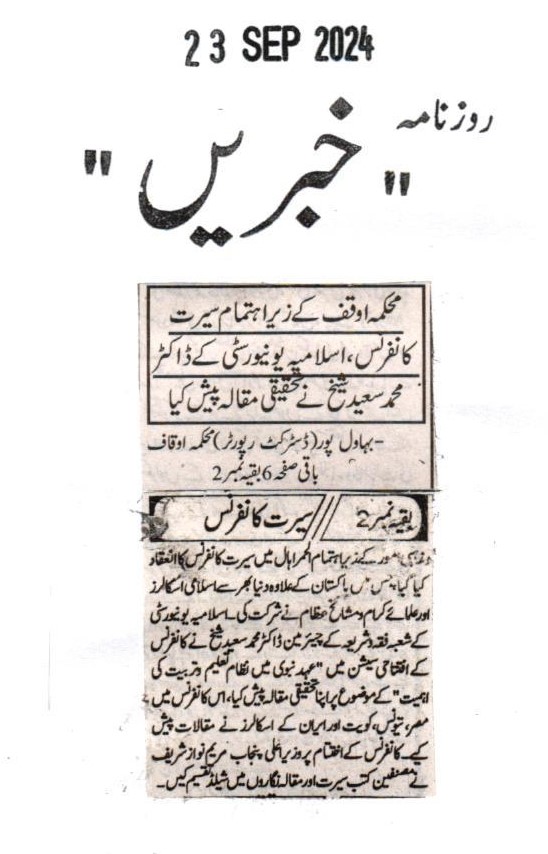 23 SEP 2024
روزنامہ
"خبریں"
محکمہ اوقف کے زیر اہتمام سیرت
کانفرنس، اسلامیہ یونیورسٹی کے ڈاکٹر
محمد سعید شیخ نے تحقیقی مقالہ پیش کیا
-بہاول پور (ڈسٹرکٹ رپورٹر) محکمہ اوقاف
باقی صفحہ 6 بقیہ نمبر 2
بقیہ نمبر 2 // سیرت کانفرنس
ومذہبی امور کے زیر اہتمام الحمرا ہال میں سیرت کانفرنس کا انعقاد
کیا گیا جس میں پاکستان کے علاوہ دنیا بھر سے اسلامی اسکالرز
اور علمائے کرام و مشائخ عظام نے شرکت کی۔ اسلامیہ یونیورسٹی
کے شعبہ فقہ و شریعہ کے چیئرمین ڈاکٹر محمد سعید شیخ نے کانفرنس
کے افتتاحی سیشن میں "عہد نبوی میں نظام تعلیم و تربیت کی
اہمیت" کے موضوع پر اپنا تحقیقی مقالہ پیش کیا، اس کانفرنس میں
مصر، تیونس، کویت اور ایران کے اسکالرز نے مقالات پیش
کیے۔ کانفرنس کے اختتام پر وزیر اعلی پنجاب مریم نواز شریف
نے مصنفین کتب سیرت اور مقالہ نگاروں میں شیلڈ تقسیم کیں۔